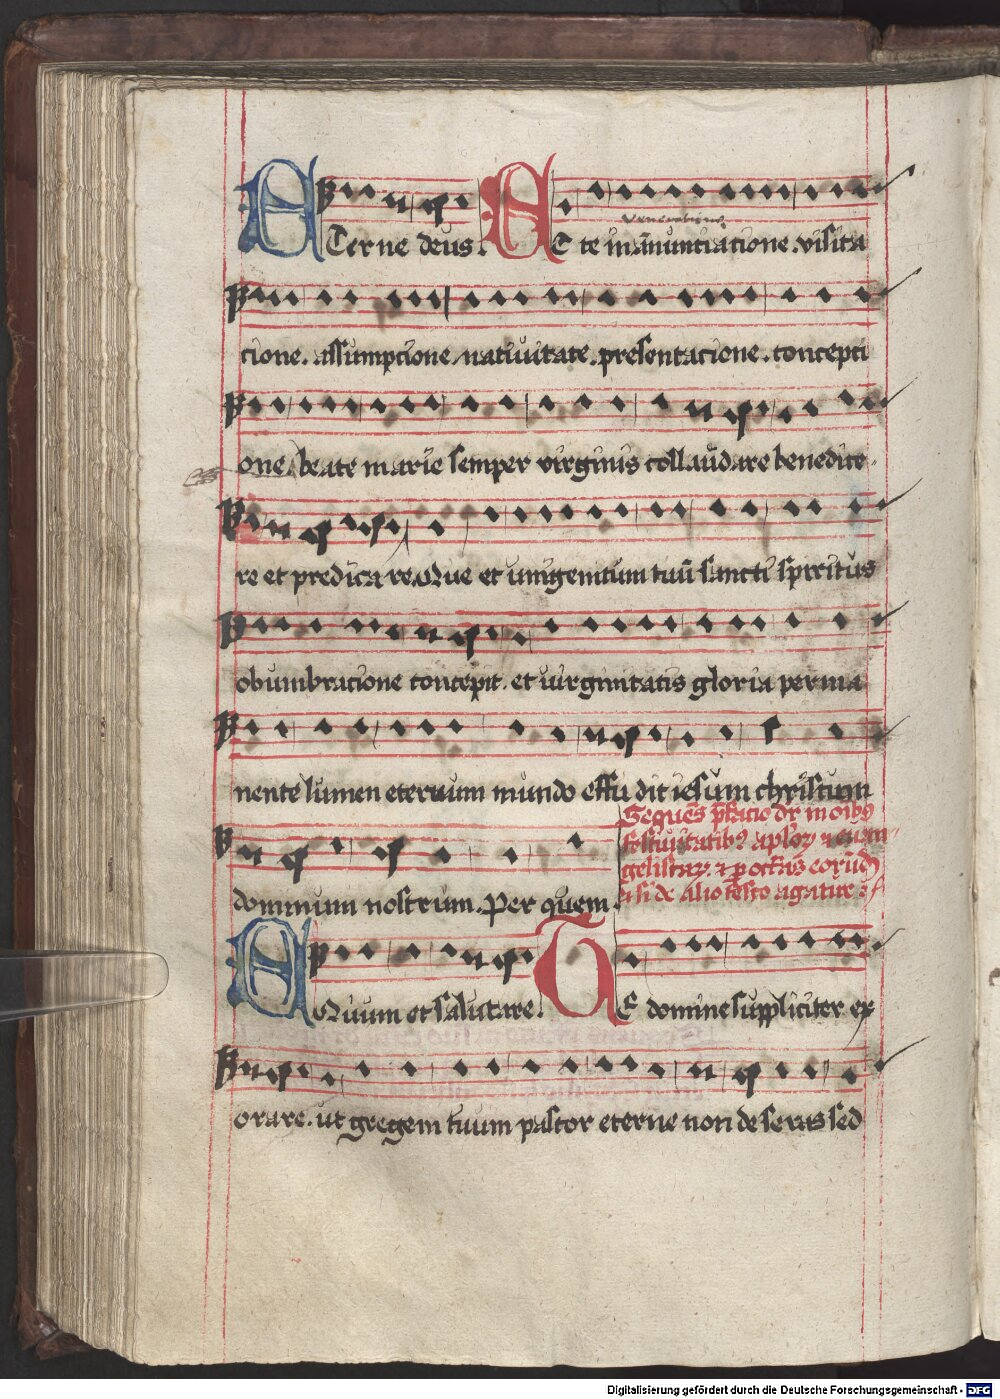 ETerne deus. ET te in ānunciatione. visita
veneratione
cione. assumpcione. natiuitate. presentacione. concepti
one. beate marie semper virginis collaudare benedice-
re et predicare. Que et unigenitum tuū sancti spiritus
obumbracione concepit. et uirginitatis gloria perma
nente lumen eternum mundo effudit iesum christum
dominum nostrum. Per quem.
Sequēs p̄facio dr̄ in oībꝰ
festiuitatibꝰ aplōꝝ et euan-
gelistaꝝ. et p octauas eorūdē
nisi de alio festo agatur
EQuum et salutare. TE domine suppliciter ex
orare. ut gregem tuum pastor eterne non deseras sed
Digitalisierung gefördert durch die Deutsche Forschungsgemeinschaft - DFG